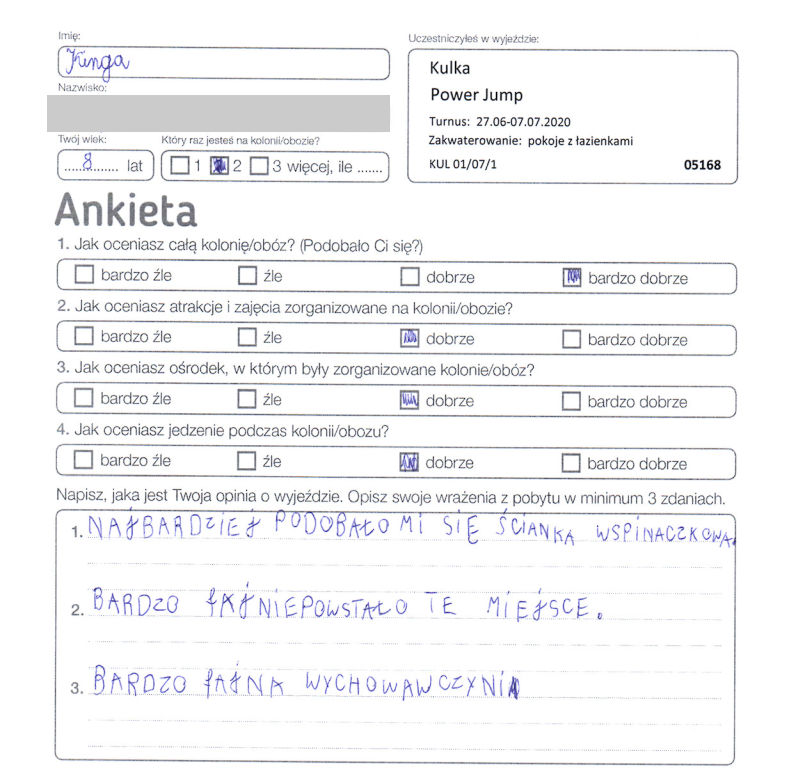 Imię:
Uczestniczyłeś w wyjeździe:
Kinga
Kulka
Nazwisko:
Power Jump
Turnus: 27.06-07.07.2020
Twój wiek:
Który raz jesteś na kolonii/obozie?
Zakwaterowanie: pokoje z łazienkami
8 lat
1 2 3 więcej, ile .......
KUL 01/07/1
05168
Ankieta
1. Jak oceniasz całą kolonię/obóz? (Podobało Ci się?)
bardzo źle źle dobrze bardzo dobrze
2. Jak oceniasz atrakcje i zajęcia zorganizowane na kolonii/obozie?
bardzo źle źle dobrze bardzo dobrze
3. Jak oceniasz ośrodek, w którym były zorganizowane kolonie/obóz?
bardzo źle źle dobrze bardzo dobrze
4. Jak oceniasz jedzenie podczas kolonii/obozu?
bardzo źle źle dobrze bardzo dobrze
Napisz, jaka jest Twoja opinia o wyjeździe. Opisz swoje wrażenia z pobytu w minimum 3 zdaniach.
1. NAJBARDZIEJ PODOBAŁO MI SIĘ ŚCIANKA WSPINACZKOWA.
2. BARDZO FAJNIEPOWSTAŁO TE MIEJSCE.
3. BARDZO FAJNA WYCHOWAWCZYNI